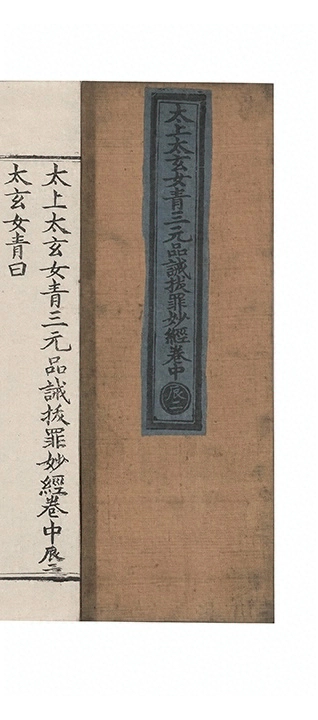 太上太玄女青三元品誡拔罪妙經卷中
辰二
太上太玄女青三元品誡拔罪妙經卷中 辰二
太玄女青曰